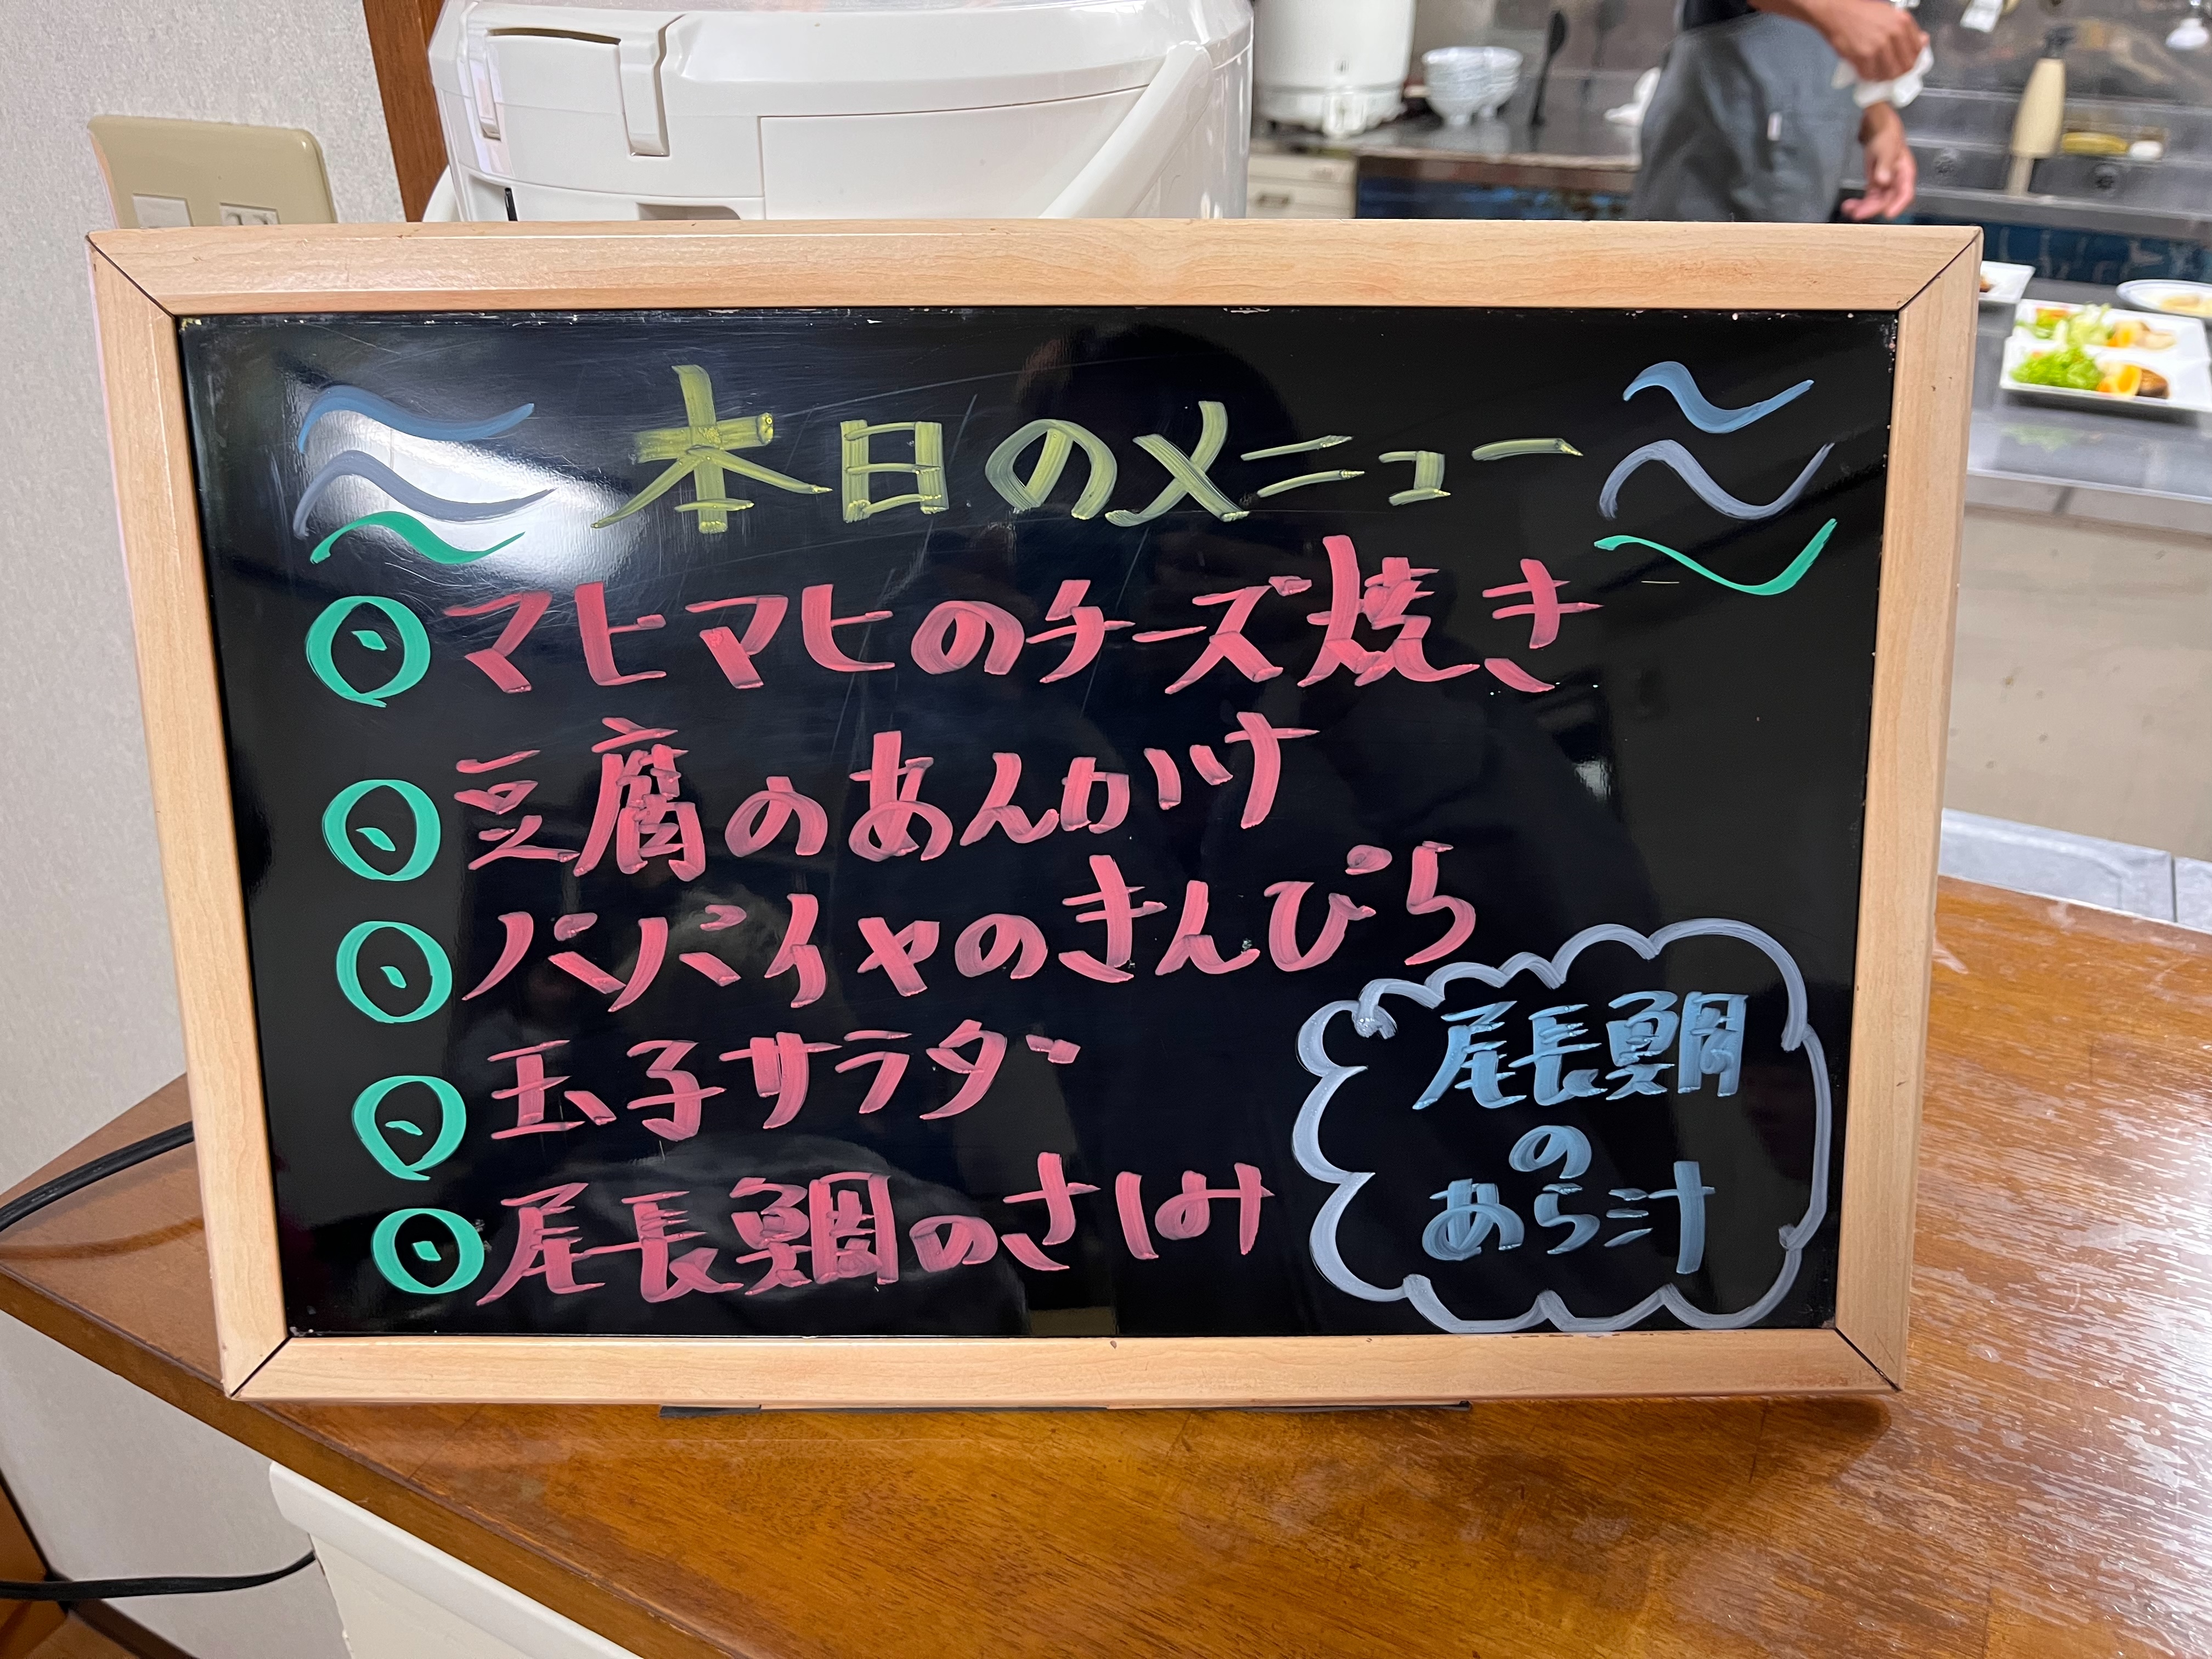 本日のメニュー
マヒマヒのチーズ焼き
豆腐のあんかけ
パパイヤのきんぴら
玉子サラダ
尾長鯛のさしみ
尾長鯛
の
あら汁